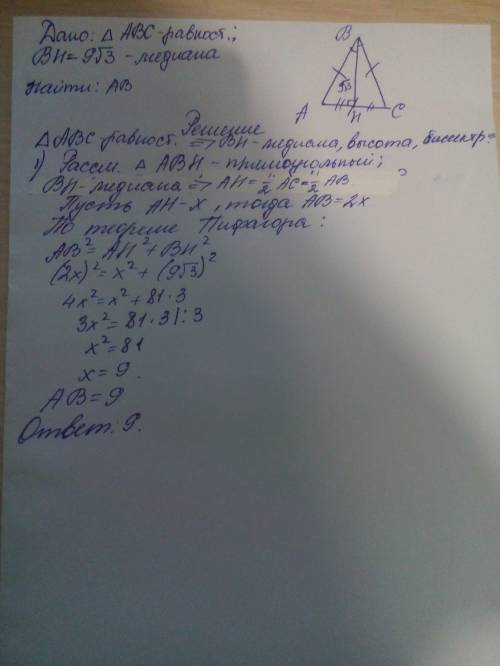 Дано: △ ABC-равност.;
BH=9√3 -медиана
Найти: AB
B
9√3
A H C
Решение
△ABC-равност. => BH-медиана, высота, биссектр-
1) Рассм. △ ABH-прямоугольный;
BH-медиана => AH=1/2 AC=1/2 AB
Пусть AH-x, тогда AB=2x
По теореме Пифагора:
AB²=AH²+BH²
(2x)²=x²+(9√3)²
4x²=x²+81·3
3x²=81·3|:3
x²=81
x=9.
AB=9
Ответ: 9.